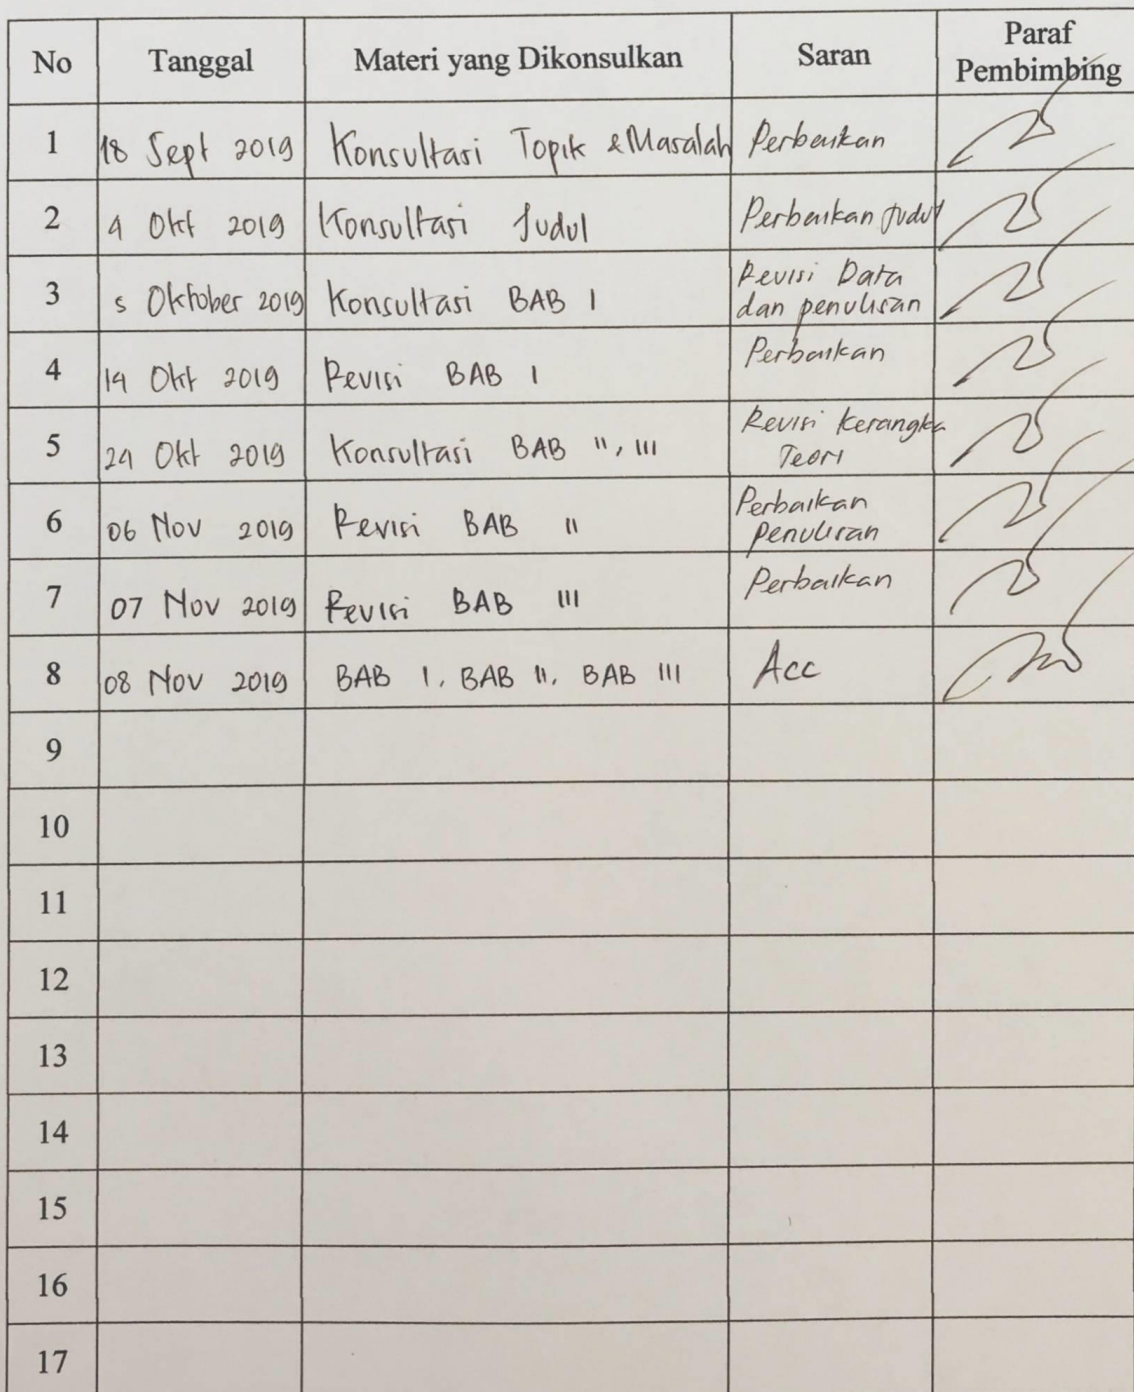 No Tanggal Materi yang Dikonsulkan Saran Paraf Pembimbing
1 18 Sept 2019 Konsultasi Topik & Masalah Perbaikan
2 4 Okt 2019 Konsultasi Judul Perbaikan Judul
3 5 Oktober 2019 Konsultasi BAB I Revisi Data
dan penulisan
4 14 Okt 2019 Revisi BAB I Perbaikan
5 24 Okt 2019 Konsultasi BAB II, III Revisi Kerangka
Teori
6 06 Nov 2019 Revisi BAB II Perbaikan
Penulisan
7 07 Nov 2019 Revisi BAB III Perbaikan
8 08 Nov 2019 BAB I, BAB II, BAB III Acc
9
10
11
12
13
14
15
16
17